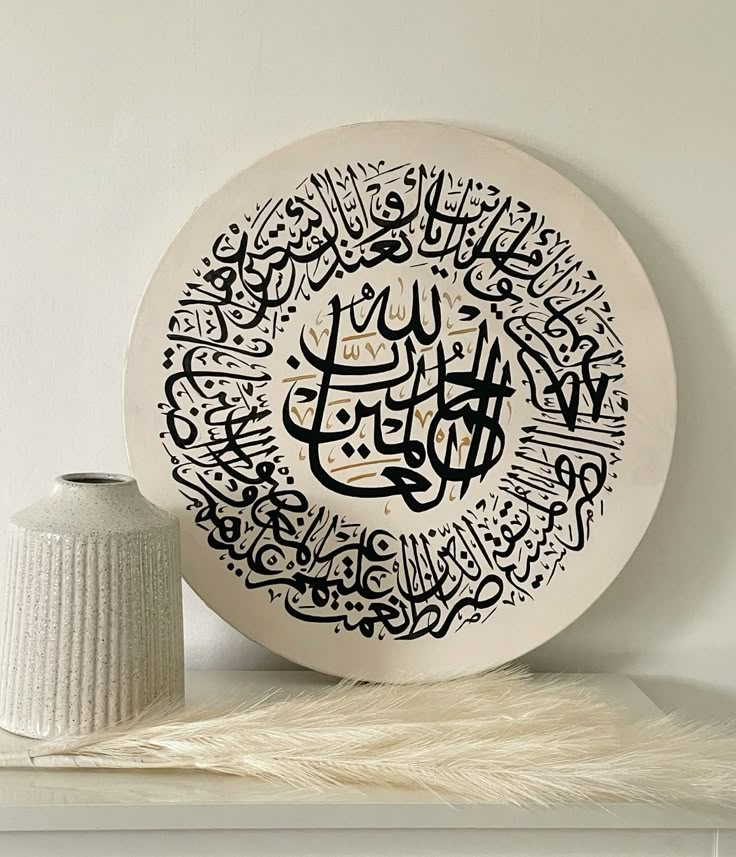 الحمد لله رب العالمين
الرحمن الرحيم ملك يوم الدين إياك نعبد وإياك نستعين اهدنا الصرط المستقيم صرط الذين أنعمت عليهم غير المغضوب عليهم ولا الضالين